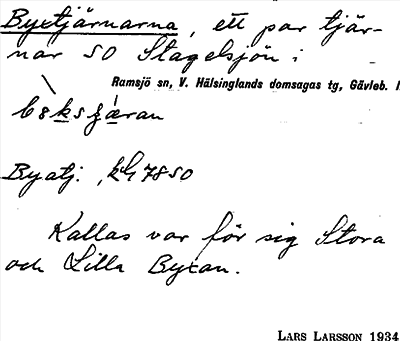 Byxtjärnarna, ett par tjär-
nar SO Stagelsjön i
Ramsjö sn, V. Hälsinglands domsagas tg, Gävleb.
Byxtj.
Kallas var för sig Stora
och Lilla Byxan.
LARS LARSSON 1934